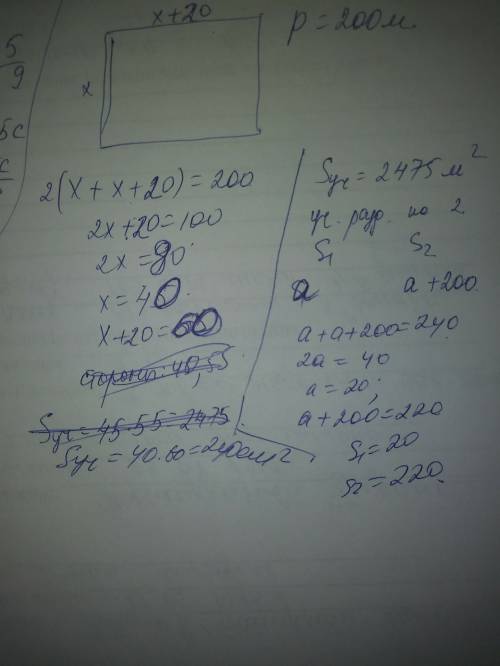 5
9
5c
c
x+20
P = 200 м.
x
2(x + x + 20) = 200
2x + 20 = 100
2x = 80
x = 40
x + 20 = 60
стороны: 40, 55
Sуч = 45·55 = 2475
Sуч = 40·60 = 2400 м²
Sуч = 2475 м²
уч. разд. на 2
S₁ S₂
a a + 200
a + a + 200 = 240
2a = 40
a = 20;
a + 200 = 220
S₁ = 20
S₂ = 220.